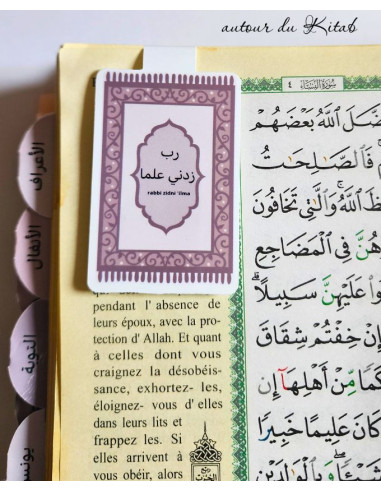 autour du Kitab
سورة النساء
٤
رب
زدني علما
rabbi zidni 'ilma
pendant l'absence de
leurs époux, avec la pro-
tection d'Allah. Et quant
à celles dont vous
craignez la désobéis-
sance, exhortez- les,
éloignez- vous d'elles
dans leurs lits et
frappez les. Si
elles arrivent à
vous obéir, alors
ضَّلَ ٱللَّهُ بَعْضَهُمْ
فَٱلصَّٰلِحَٰتُ
ظَ ٱللَّهُ وَٱلَّٰتِى تَخَافُونَ
هُنَّ فِى ٱلْمَضَاجِعِ
وا۟ عَلَيْهِنَّ سَبِيلًا
إِنْ خِفْتُمْ شِقَاقَ
كَمًا مِّنْ أَهْلِهَآ إِن
كَانَ عَلِيمًا خَبِيرًا
شَيْـًٔا وَبِٱلْوَٰلِدَيْنِ
الأعراف
الأنفال
التوبة
يونس